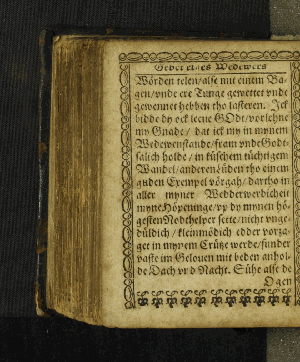 Gebet eines Wedewers
Wörden telen/ alse mit einem Ba-
gen/ vnde ere Tunge gewettet vnde
gewennet hebben tho lasteren. Ick
bidde dy ock leeue GOdt/ vorlehne
my Gnade/ dat ick my in mynem
Wedewenstande/ fram vnde Godt-
salich holde/ in küschem tüchtigem
Wandel/ anderen lüden tho einem
guden Exempel vörgah/ dartho in
aller myner Wedderwerdicheit
myne Höpeninge/ vp dy mynen hö-
gesten Nodthelper sette/ nicht vnge-
düldich/ kleinmödich edder vorza-
get in mynem Crütze werde/ sunder
vaste im Gelouen mit beden anhol-
de Dach vnd Nacht. Sühe alse de
Ogen